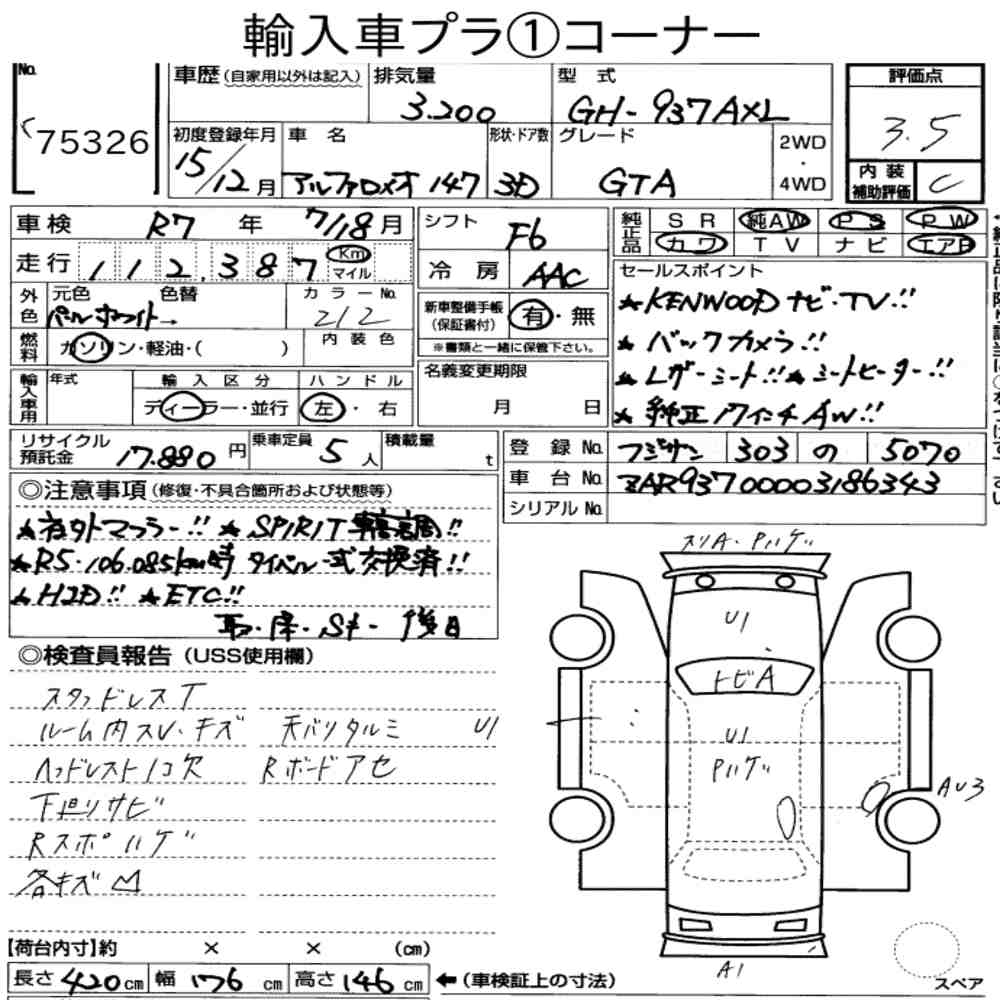 輸入車プラ①コーナー
No. 75326
車歴 (自家用以外は記入)
排気量 3.200
型式 GH-937AXL
評価点 3.5
内装補助評価 C
初度登録年月 15/12月
車名 アルファロメオ 147
形状・ドア数 3D
グレード GTA
2WD・4WD
車検 R7年 7/18月
走行 112,387 Km マイル
外色 元色 色替 パールホワイト→
カラーNo. 212
燃料 ガソリン・軽油・( )
内装色
輸入車用 年式
輸入区分 ディーラー・並行
ハンドル 左・右
シフト F6
冷房 AAC
新車整備手帳(保証書付) 有・無
※書類と一緒に保管下さい。
名義変更期限 月 日
純正品 SR 純AW PS PW
カワ TV ナビ エアB
セールスポイント
★KENWOOD ナビ・TV!!
★バックカメラ!!
★レザーシート!! ★シートヒーター!!
★純正17インチAW!!
リサイクル預託金 17.880円
乗車定員 5人
積載量 t
登録No. フジサン 303 の 5070
車台No. ZAR93700003186343
シリアルNo.
◎注意事項 (修復・不具合箇所および状態等)
★社外マフラー!! ★SPIRIT車高調!!
★R5・106.085km時 タイベル一式交換済!!
★HID!! ★ETC!!
取・保・Sキー 後日
◎検査員報告 (USS使用欄)
スタッドレスT
ルーム内スレ・キズ 天バリタルミ U1
ヘッドレスト1コ欠 Rボードアセ
下廻りサビ
Rスポハゲ
各キズ凹
スリA・Pハゲ
U1
トビA
U1
Pハゲ
AU3
A1
スペア
【荷台内寸】約 × × (cm)
長さ 420cm 幅 176cm 高さ 146cm ←(車検証上の寸法)